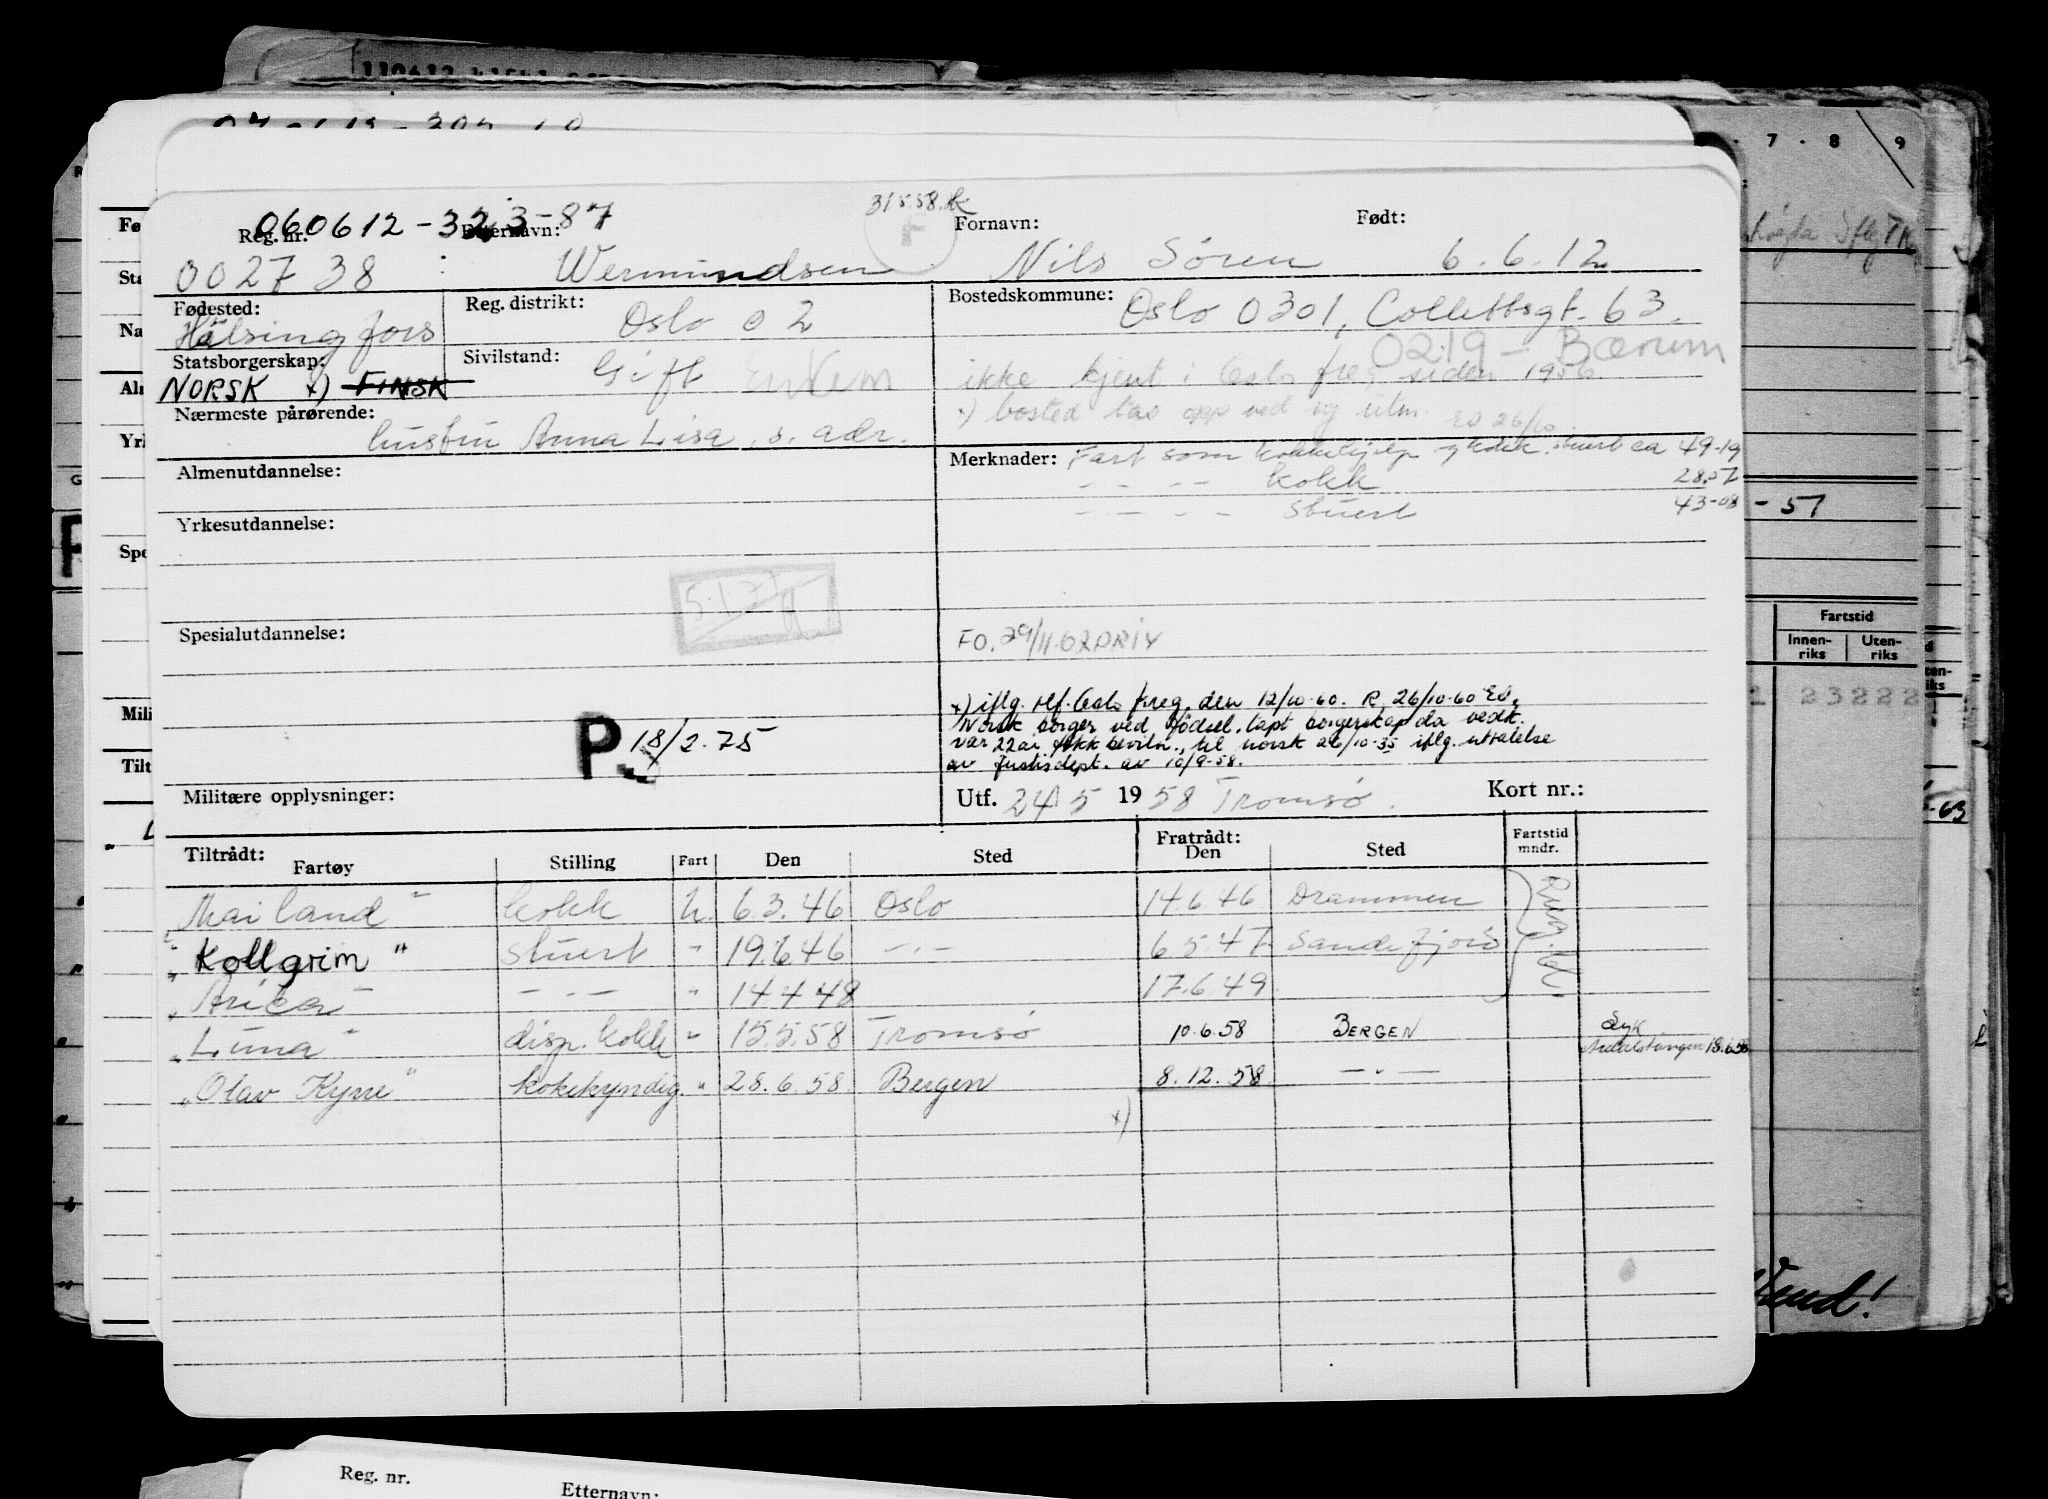 31558.k
060612-323-87
Reg. nr. Etternavn: F Fornavn: Født:
002738 Wermundsen Nils Søren 6.6.12
Fødested: Reg. distrikt: Bostedskommune:
Hälsingfors Oslo 02 Oslo 0301, Collettsgt. 63.
0219 - Bærum
Statsborgerskap: Sivilstand:
NORSK x) FINSK Gift ikke kjent i Oslo freg siden 1956.
Nærmeste pårørende: x) bosted tas opp ved ny utm. 26/10.
hustru Anna Lisa, s. adr.
Almenutdannelse:
Merknader: Fart som kokk stuert ca 49-19
kokk 28.07
stuert 43-08 - 57
Yrkesutdannelse:
Spesialutdannelse:
FO. 29/11.62 PRIV
x) iflg. tlf. Oslo freg. den 12/10-60. R. 26/10-60
Norsk borger ved födsel. tapt borgerskap da vedk.
var 22 år fikk beviln. til norsk 26/10-35 iflg. uttalelse
av Justisdept. av 10/9-58.
P 18/2.75
Militære opplysninger: Utf. 24/5 1958 Tromsø. Kort nr.:
Tiltrådt: Fratrådt: Fartstid mndr.
Fartøy Stilling Fart Den Sted Den Sted
"Mailand" kokk U. 6.3.46 Oslo 14.6.46 Drammen
"Kollgrim" stuert " 19.6.46 -.- 6.5.47 Sandefjord
"Arica" -.- " 14.4.48 17.6.49
"Luna" disp. kokk " 15.5.58 Tromsø 10.6.58 BERGEN Syk
18.6.58
"Olav Kyrre" kokekyndig " 28.6.58 Bergen 8.12.58 -.-
x)
7 . 8 9
Fartstid
Innen-riks Uten-riks
23222
-63
Vend!
Reg. nr. Etternavn: